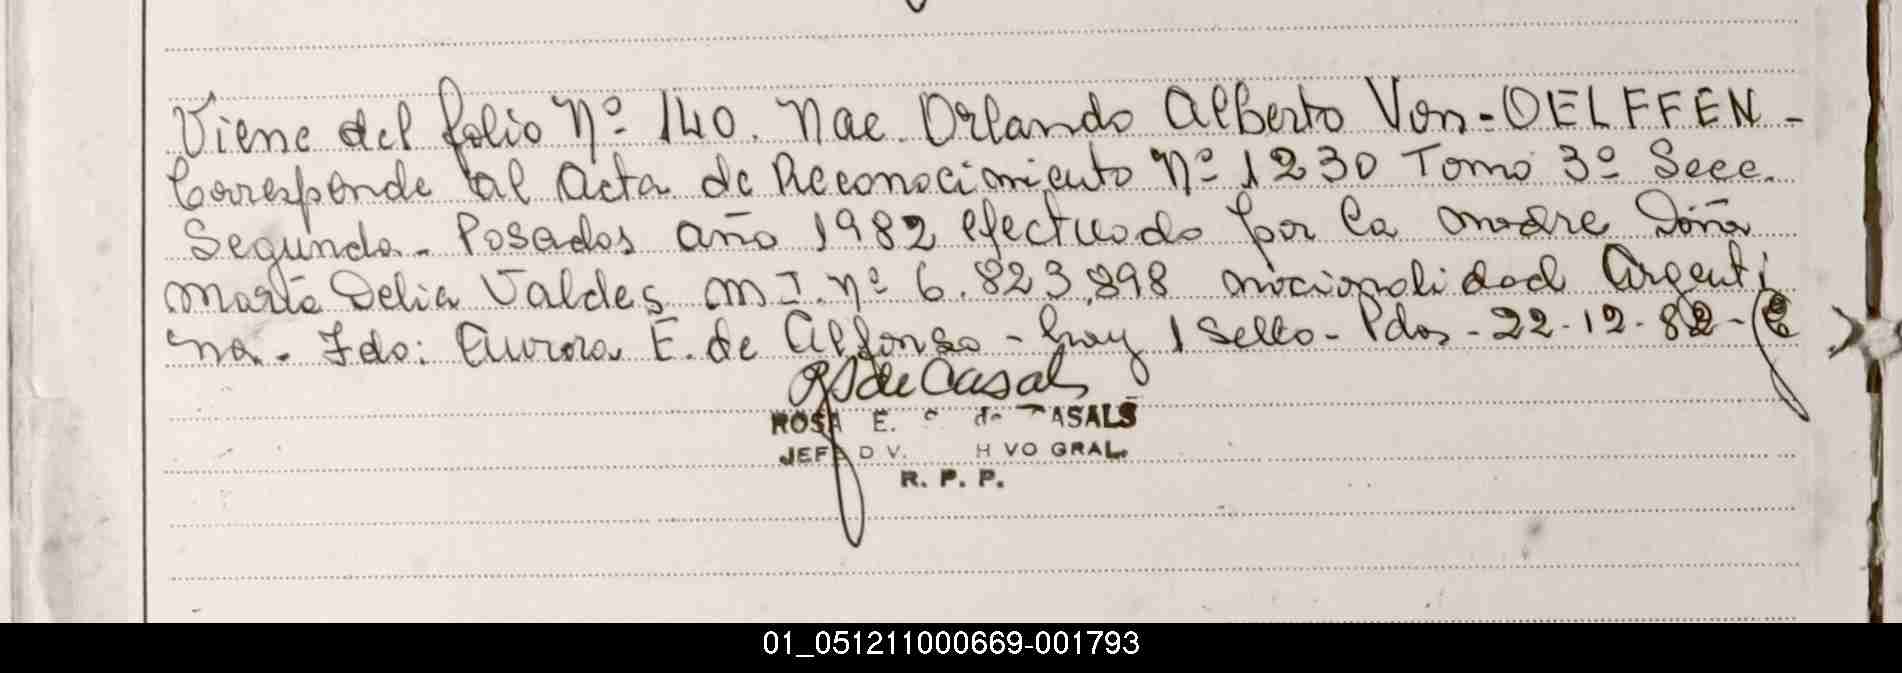 Viene del folio Nº 140. Nac. Orlando Alberto Von-OELFFEN-
Corresponde al Acta de Reconocimiento Nº 1230 Tomo 3º Secc.
Segunda- Posadas año 1982 efectuado por la madre Doña
María Delia Valdes M I. Nº 6.823.898 nacionalidad Argenti
na. Fdo: Aurora E. de Alfonso - hay 1 Sello - Pdas - 22-12-82-
de Casals
ROSA E. S. de CASALS
JEFE DV. H VO GRAL.
R. P. P.
01_051211000669-001793